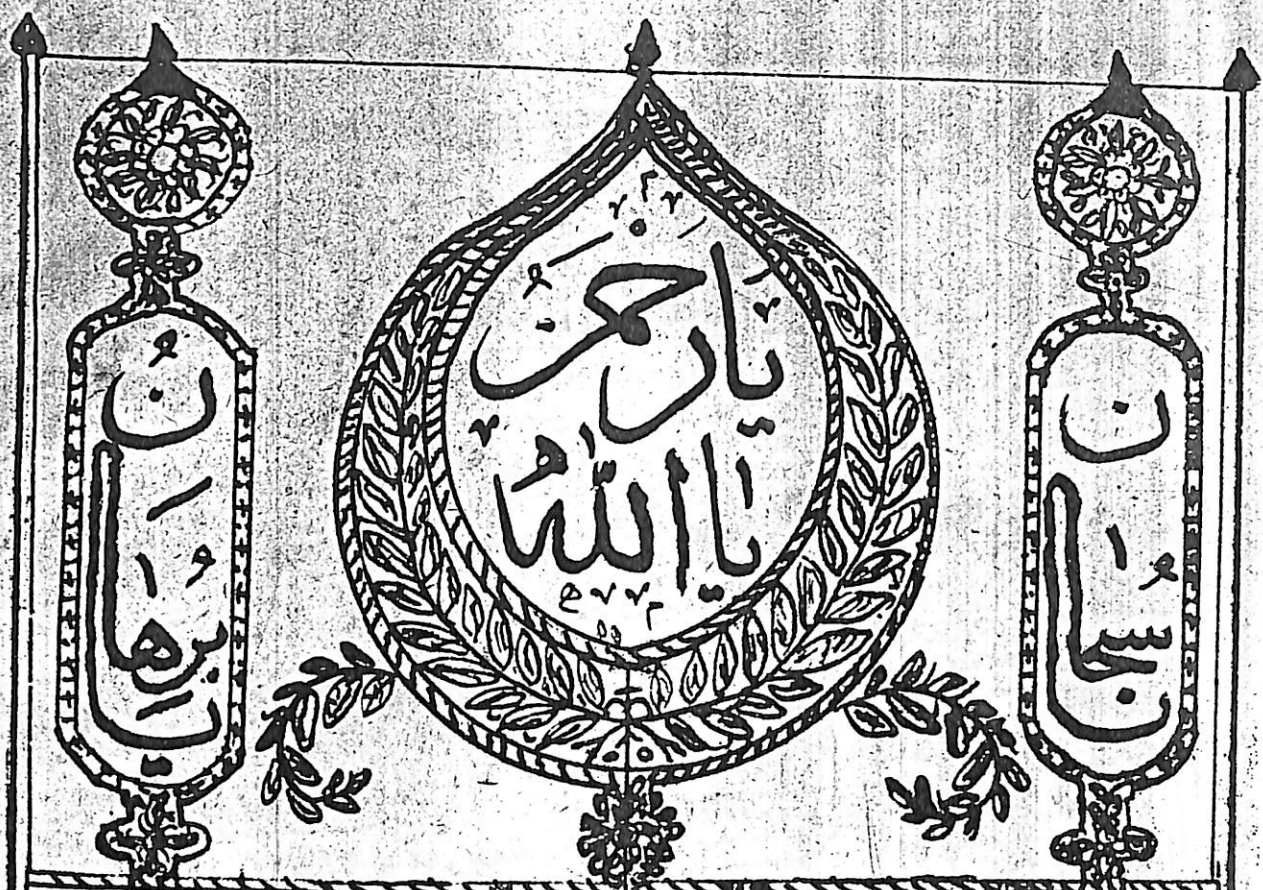 يا سُبحان
يا رحمنُ
يا اللهُ
يا بُرهانُ